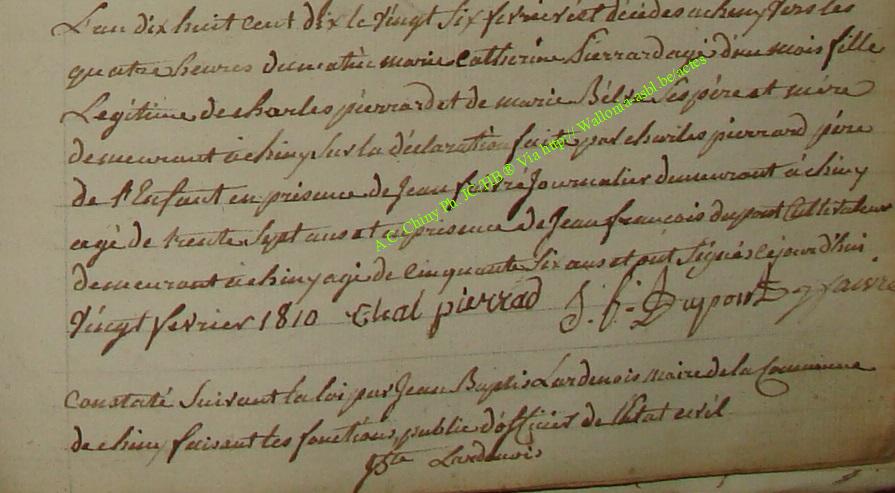 L'an dix huit cent dix le Vingt Six fevrier est décédés a chiny Vers les
quatre heures du matin marie Catherine Pierrard agé d'une mois fille
Legitime de charles pierrard et de marie Ses père et mère
demeurant a chiny Sur la déclaration fait par charles pierrard père
de l'Enfant en présence de Jean Journalier demeurant á chiny
agé de trente Sept ans et en presence de Jean francois dupont Cultivateur
demeurant a chiny agé de Cinquante Six ans et ont Signés cejourd'hui
Vingt fevrier 1810 Chal pierrad J. f. Dupont
Constaté Suivant la loi par Jean Baptis Lardenois maire de la Commune
de chiny faisant les fonctions public d'officier de l'Etat civil
Bte Lardenois
A.C. Chiny Ph. JC-HB® Via http://Wallonia-asbl.be/actes